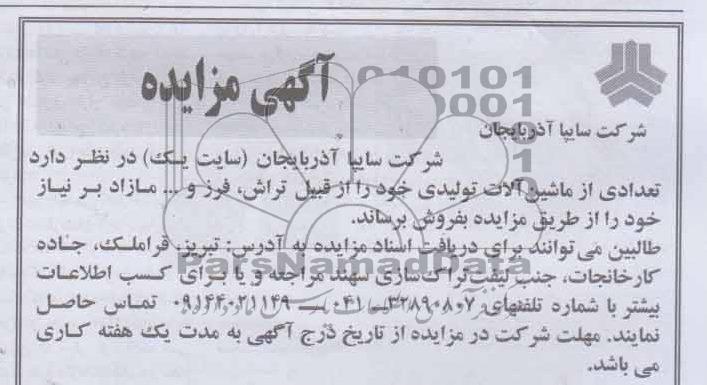 آگهی مزایده
شرکت سایپا آذربایجان
شرکت سایپا آذربایجان (سایت یک) در نظر دارد
تعدادی از ماشین آلات تولیدی خود را از قبیل تراش، فرز و ... مازاد بر نیاز
خود را از طریق مزایده بفروش برساند.
طالبین می توانند برای دریافت اسناد مزایده به آدرس: تبریز، قراملک، جاده
کارخانجات، جنب لیفتراک سازی سهند مراجعه و یا برای کسب اطلاعات
بیشتر با شماره تلفنهای ۳۲۸۹۰۸۰۷-۰۴۱ — ۰۹۱۴۴۰۲۱۱۴۹ تماس حاصل
نمایند. مهلت شرکت در مزایده از تاریخ درج آگهی به مدت یک هفته کاری
می باشد.
ParsNamadData